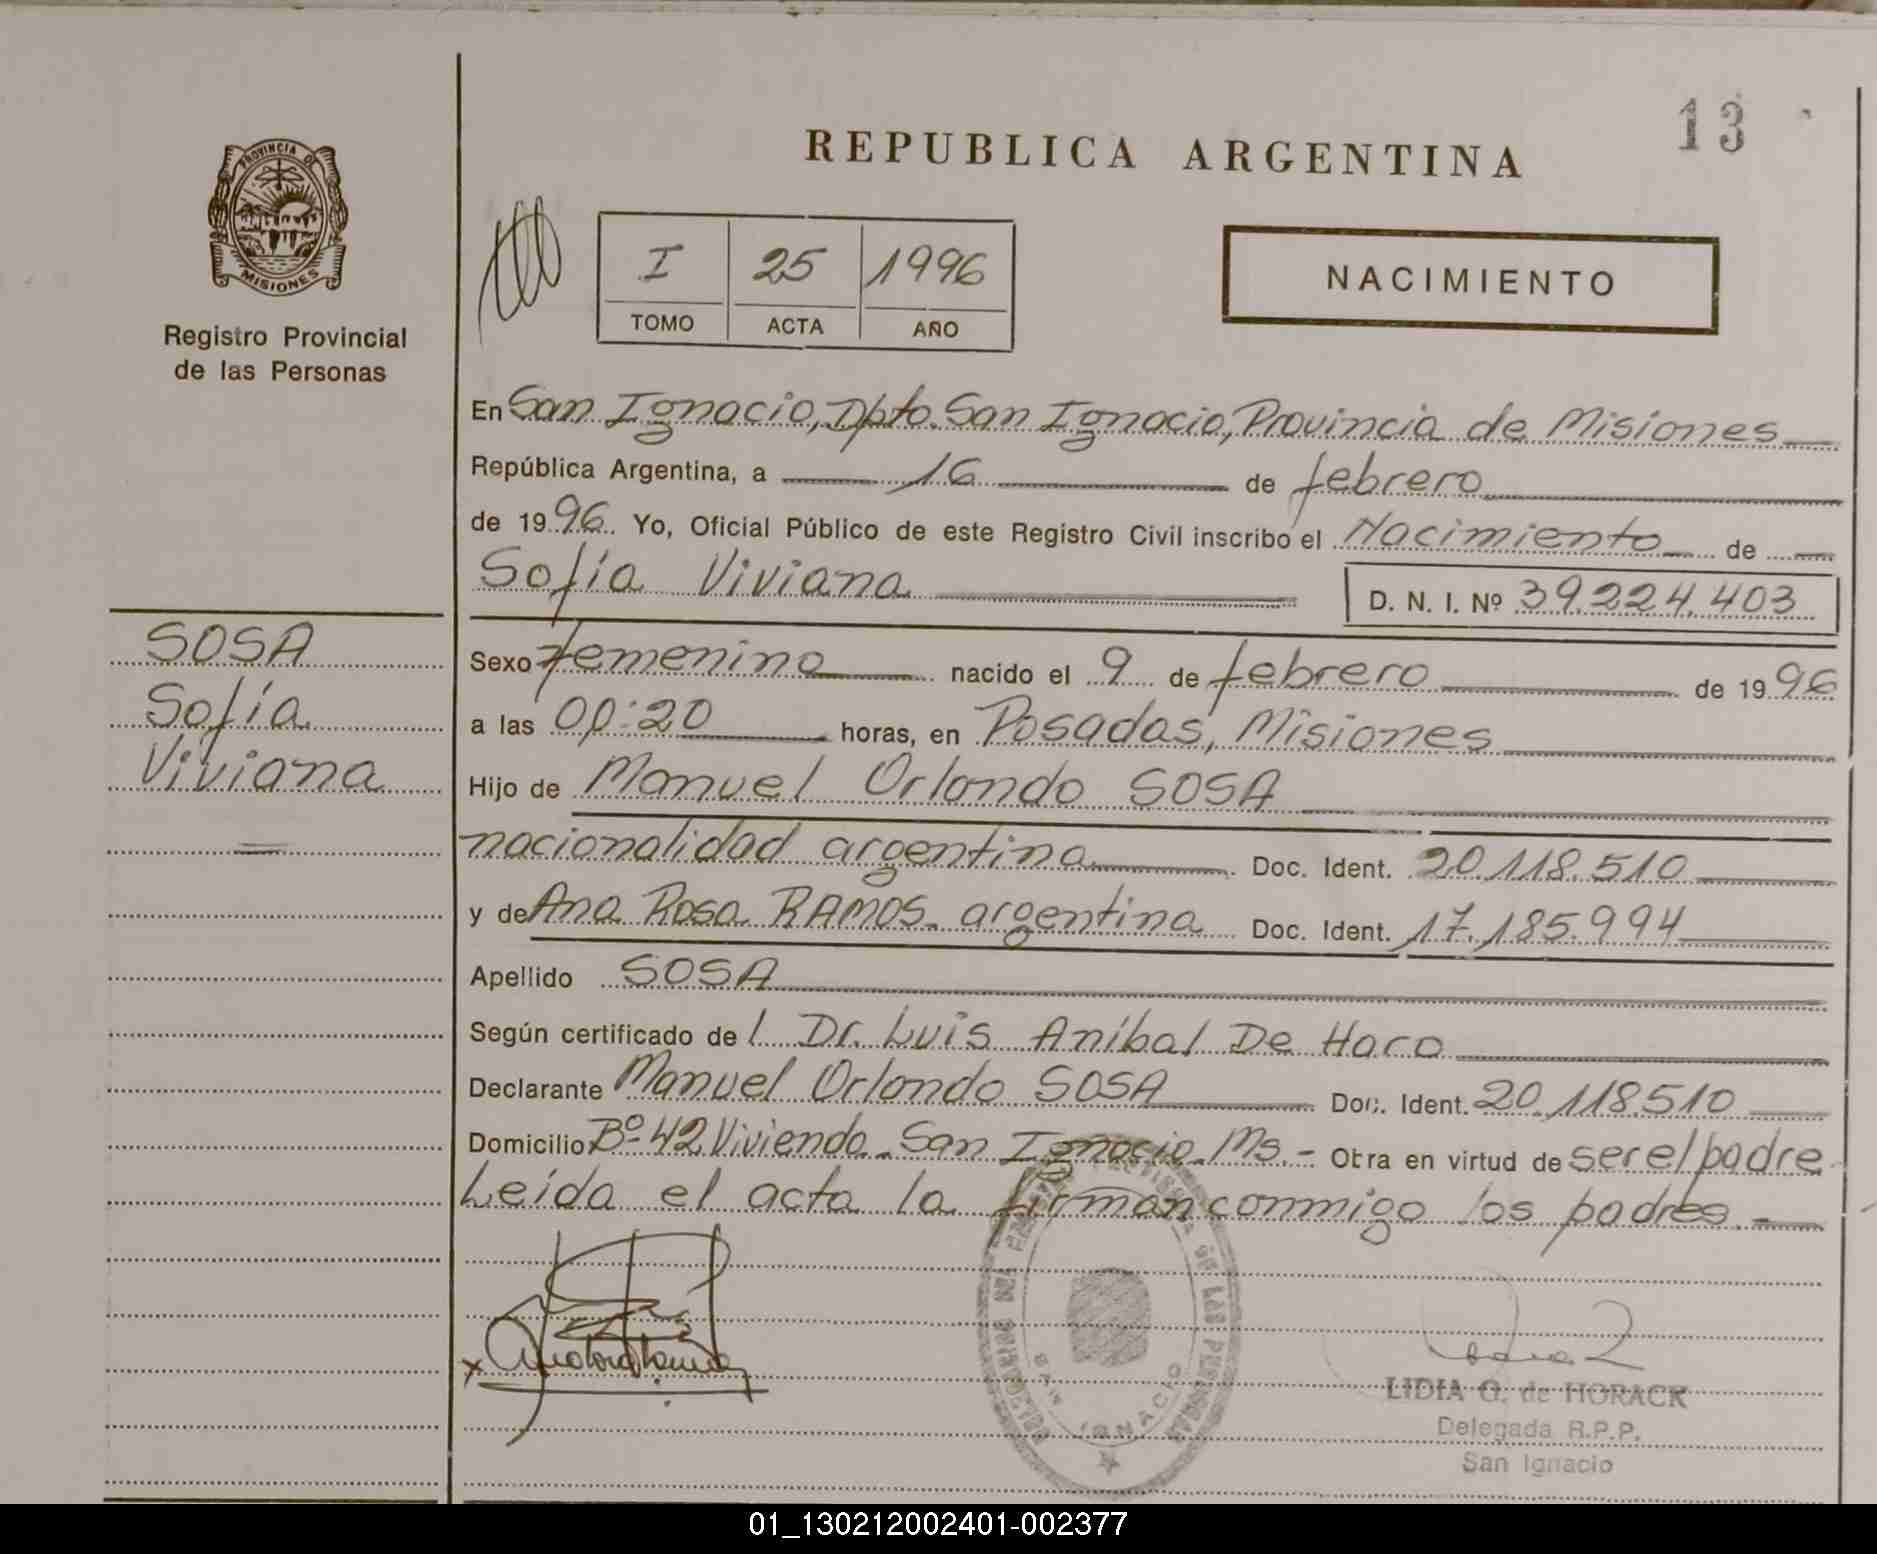 13
REPUBLICA ARGENTINA
PROVINCIA DE
MISIONES
Registro Provincial
de las Personas
I 25 1996
TOMO ACTA AÑO
NACIMIENTO
En San Ignacio, Dpto. San Ignacio, Provincia de Misiones
República Argentina, a 16 de febrero
de 1996. Yo, Oficial Público de este Registro Civil inscribo el Nacimiento de
Sofía Viviana D. N. I. Nº 39.224.403
SOSA
Sofía
Viviana
Sexo femenino nacido el 9 de febrero de 1996
a las 00:20 horas, en Posadas, Misiones
Hijo de Manuel Orlando SOSA
nacionalidad argentina Doc. Ident. 20.118.510
y de Ana Rosa RAMOS - argentina Doc. Ident. 17.185.994
Apellido SOSA
Según certificado del Dr. Luis Aníbal De Haro
Declarante Manuel Orlando SOSA Doc. Ident. 20.118.510
Domicilio Bº-42 Vivienda - San Ignacio - Ms. - Obra en virtud de ser el padre
Leída el acta la firman conmigo los padres. -
DE LAS PERSONAS
SAN IGNACIO
LIDIA G. de HORACK
Delegada R.P.P.
San Ignacio
01_130212002401-002377